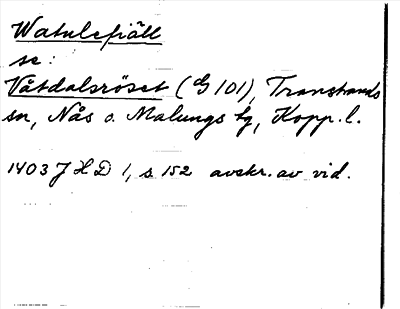 Watulefiäll
se:
Våtdalsröset (G 101), Transtrands
sn, Nås o. Malungs tg, Kopp. l.
1403 JHD 1, s. 152 avskr. av vid.